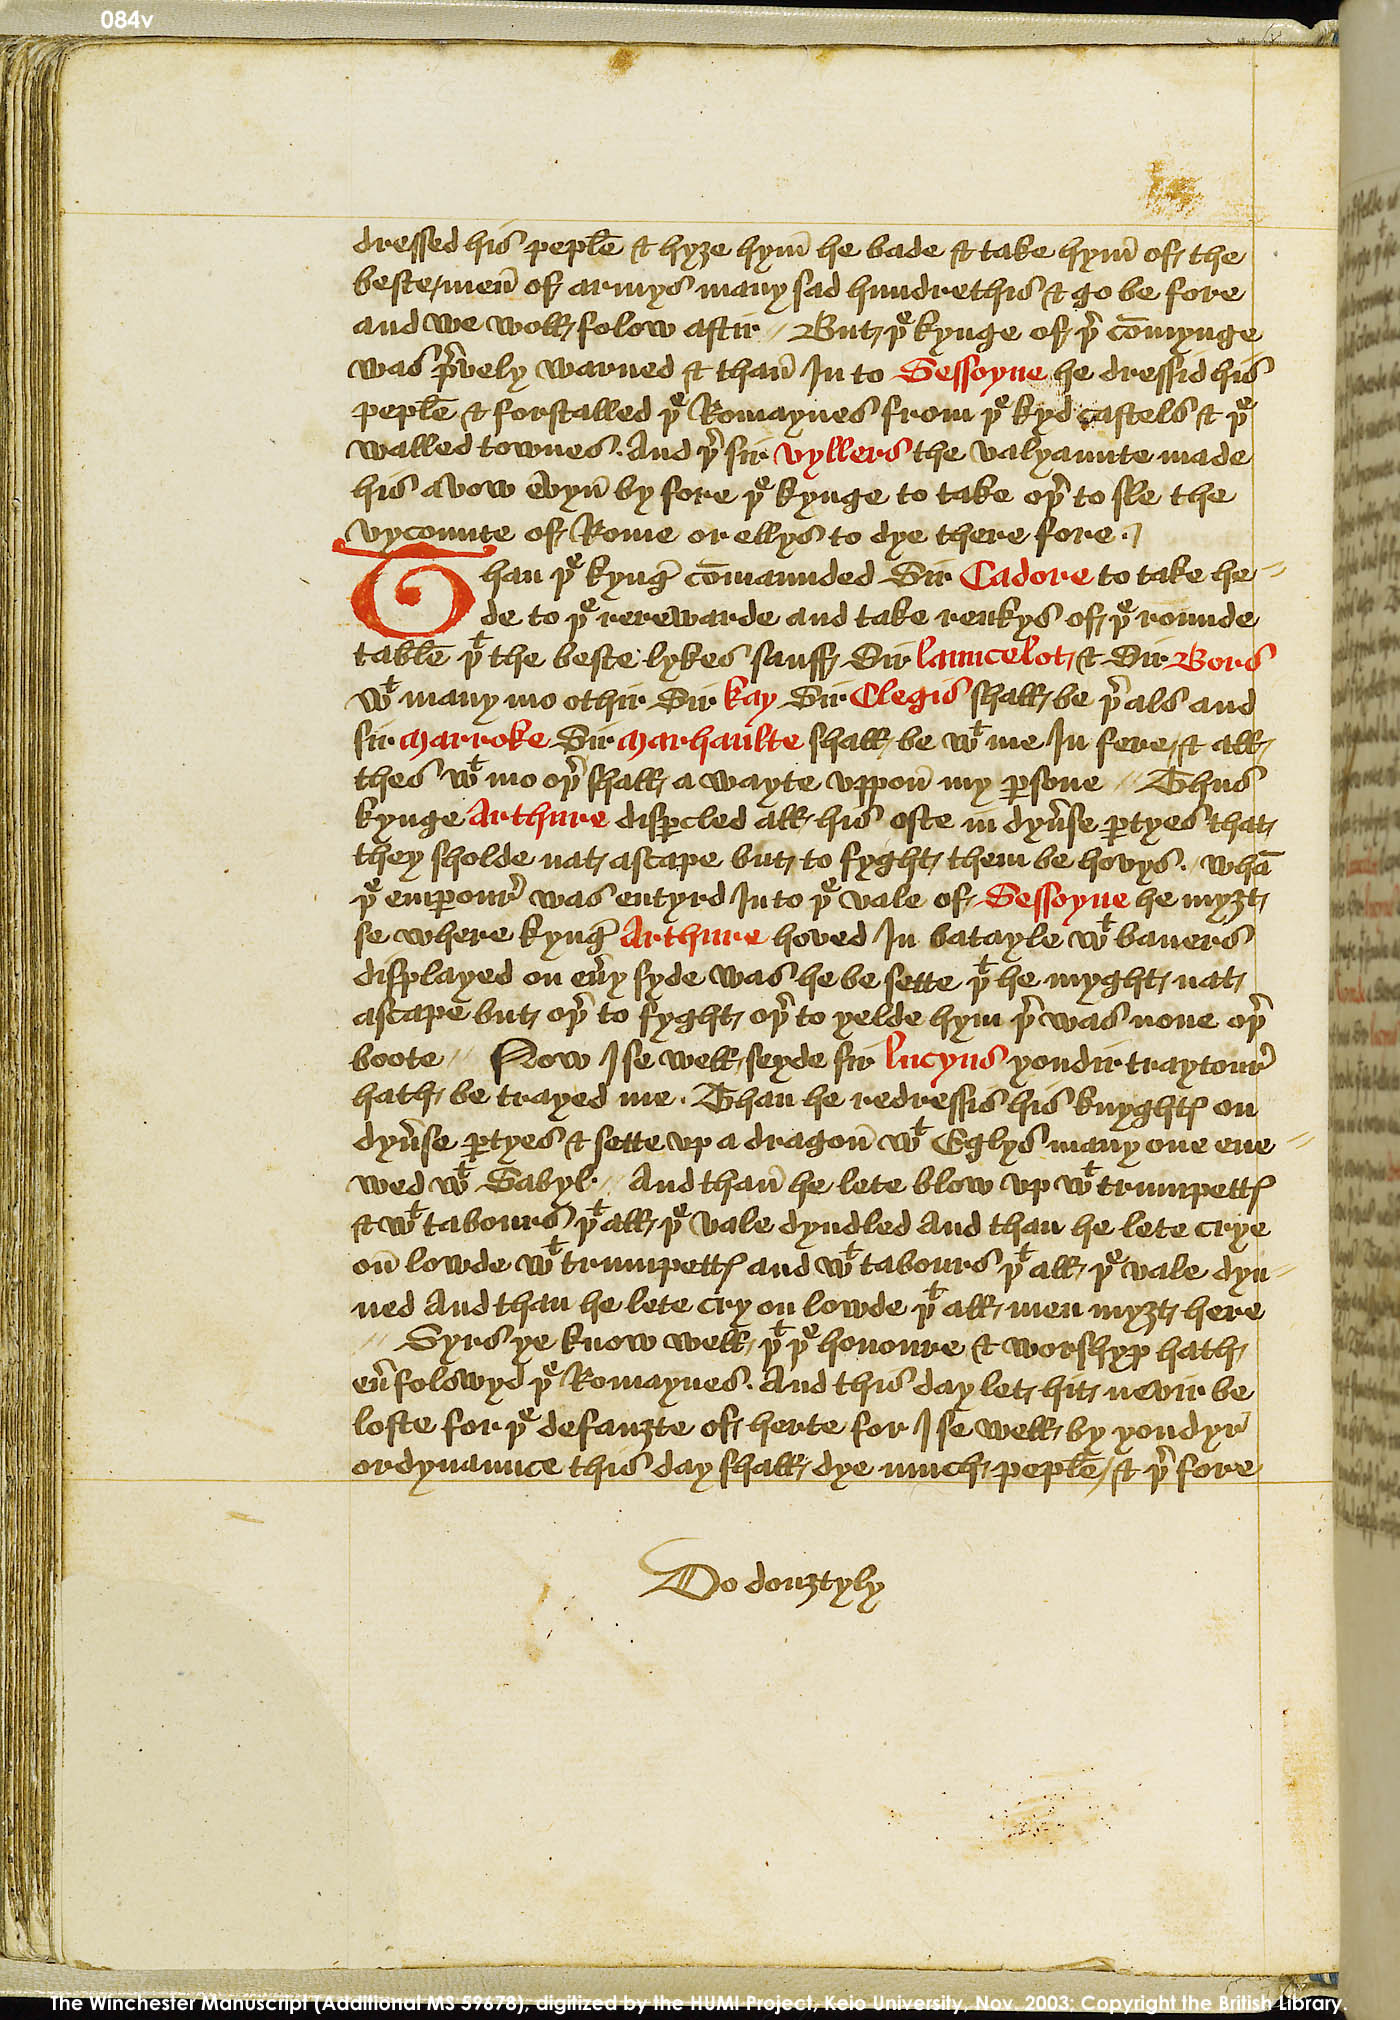 084v
dressed his peple & hyȝe hym he bade & take hym of the
beste men of armys many sad hundrethis & go be fore
and we woll folow aftir // But þe kynge of þr comynge
was prvely warned & than In to Sessoyne he dressid his
peple & forstalled þe Romaynes from þe kyd castels & þe
walled townes. And þr sir Vyllers the valyaunte made
his avow evyn by fore þe kynge to take oþr to sle the
vycounte of Rome or ellys to dye there fore.
Than þe kynge comaunded Sir Cadore to take he=
de to þe rerewarde and take renkys of þe rounde
table þt the beste lykes sauff Sir launcelot & Sir Bors
wt many mo othir Sir kay Sir Clegis shall be þr als and
sir Marroke Sir Marhaulte shall be wt me In fere & all
thes wt mo oþr shall a wayte vppon my persone // Thus
kynge Arthure dispercled all his oste in dyverse partyes that
they sholde nat ascape but to fyght them be hovys. // whan
þe emperour was entyrd In to þe vale of Sessoyne he myȝt
se where kynge Arthure hoved In batayle wt baners
displayed on every syde was he be sette þt he myght nat
ascape but oþr to fyght oþr to yelde hym þr was none oþr
boote // Now I se well seyde sir lucyus yondir traytour
hath be trayed me. Than he redressis his knyghtes on
dyverse partyes & sette vp a dragon wt Eglys many one ene=
wed wt Sabyl // And than he lete blow vp wt trumpettes
& wt tabours þt all þe vale dyndled And than he lete crye
on lowde wt trumpettes and wt tabours þt all þe vale dyn=
ned And than he lete cry on lowde þt all men myȝt here
// Syrs ye know well þt þe honoure & worshyp hath
ever folowyd þe Romaynes. And this day let hit nevir be
loste for þe defauȝte of herte for I se well by yondyr
ordynaunce this day shall dye much peple & þr fore
Do douȝtyly
The Winchester Manuscript (Additional MS 59678), digitized by the HUMI Project, Keio University, Nov. 2003; Copyright the British Library.